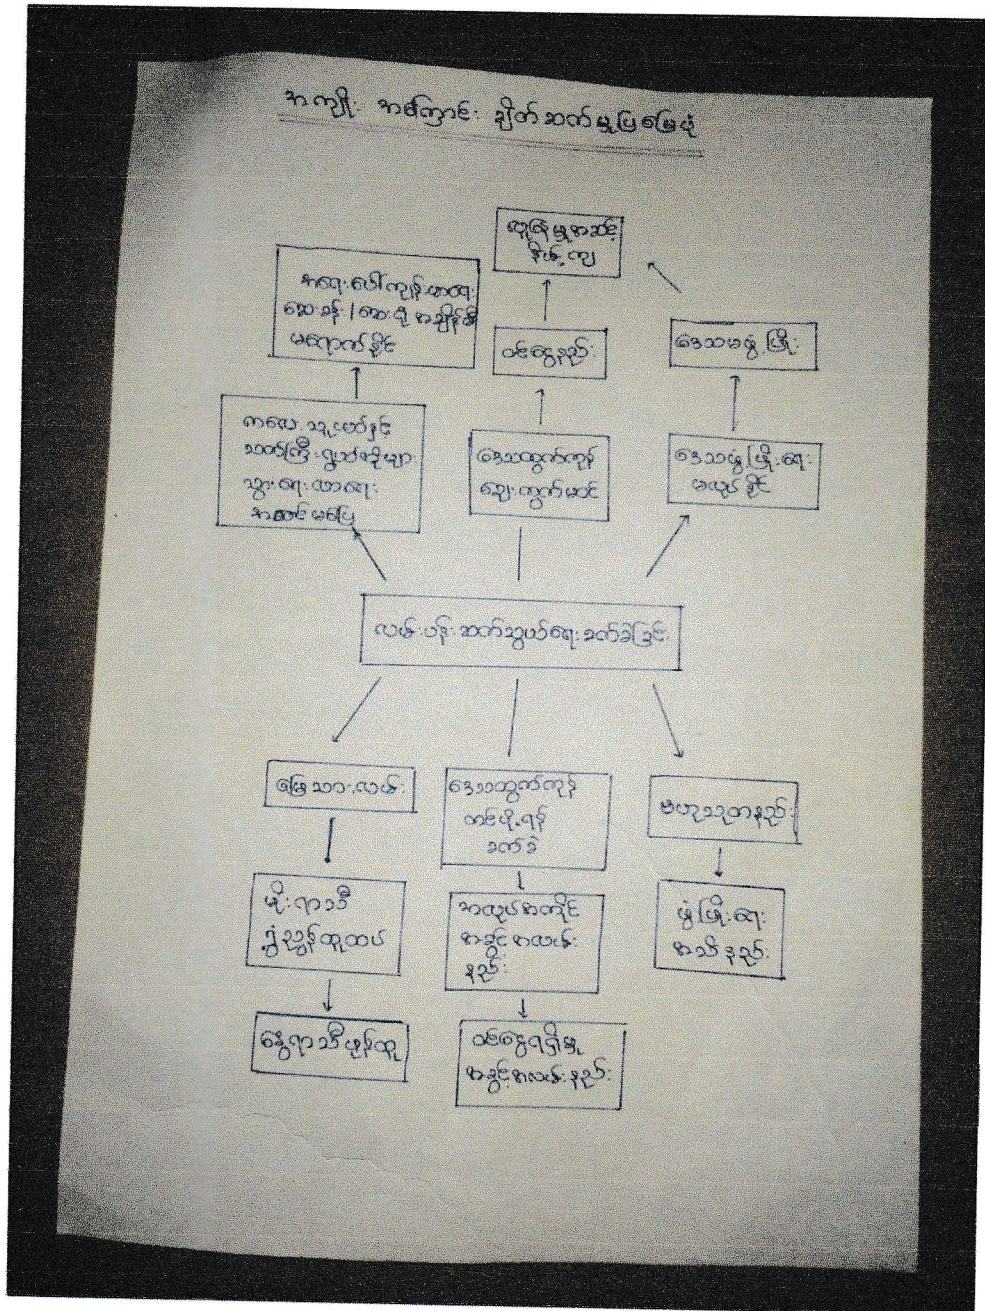 အကျိုး အကြောင်း ချိတ်ဆက်မှုပြမြေပုံ
လူနေမှုအဆင့်
နိမ့်ကျ
အရေးပေါ်ကျန်းမာရေး
ဆေးခန်း / ဆေးရုံ အချိန်မီ
မရောက်နိုင်
ဝင်ငွေနည်း
ဒေသမဖွံ့ဖြိုး
ကလေး သူငယ်နှင့်
သက်ကြီးရွယ်အိုများ
သွားရေးလာရေး
အဆင်မပြေ
ဒေသထွက်ကုန်
ဈေးကွက်မဝင်
ဒေသဖွံ့ဖြိုးရေး
မလုပ်နိုင်
လမ်းပန်းဆက်သွယ်ရေးခက်ခဲခြင်း
မြေသားလမ်း
ဒေသထွက်ကုန်
တင်ပို့ရန်
ခက်ခဲ
ဗဟုသုတနည်း
မိုးရာသီ
ရွှံ့ညွှန်ထူထပ်
အလုပ်အကိုင်
အခွင့်အလမ်း
နည်း
ဖွံ့ဖြိုးရေး
အသိနည်း
နွေရာသီဖုန်ထူ
ဝင်ငွေရရှိမှု
အခွင့်အလမ်းနည်း